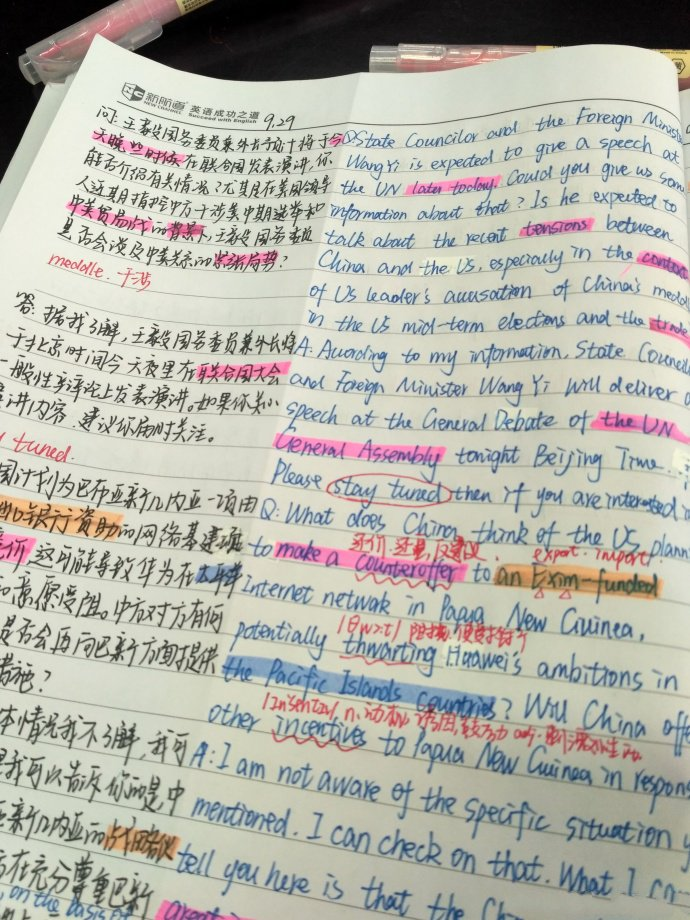 新航道 英语成功之道
NEW CHANNEL Succeed with English
9.29
问: 王毅国务委员兼外长预计将于今
天晚些时候在联合国发表演讲,你
能否介绍有关情况?尤其在美国领导
人这期指控中方干涉美中期选举和
中美贸易战的背景下,王毅国务委员
是否会谈及中美关系的紧张局势?
meddle. 干涉
答: 据我了解,王毅国务委员兼外长将
于北京时间今天夜里在联合国大会
一般性辩论上发表演讲。如果你关心
演讲内容,建议你届时关注。
tuned.
国计划为巴布亚新几内亚一项由
银行资助的网络基建项
价,这可能导致华为在太平洋
受阻。中方对方有何
是否会再向巴新方面提供
措施?
本情况我不了解,我可
是我可以告诉你的是,中
亚新几内亚的战略
在充分尊重巴新
on the basis of
Q: State Councilor and the Foreign Minister
Wang Yi is expected to give a speech at
the UN later today. Could you give us some
information about that? Is he expected to
talk about the recent tensions between
China and the US, especially in the context
of US leader's accusation of China's medd
in the US mid-term elections and the trade
A: According to my information, State Counci
and Foreign Minister Wang Yi will deliver a
speech at the General Debate of the UN
General Assembly tonight Beijing Time.
Please stay tuned then if you are interested i
Q: What does China think of the US plann
还价,还盘,反建议 export. import
to make a counteroffer to an Exim-funded
Internet network in Papua New Guinea,
potentially thwarting Huawei's ambitions in
the Pacific Islands countries? Will China offe
other incentives to Papua New Guinea in respon
A: I am not aware of the specific situation y
mentioned. I can check on that. What I can
tell you here is that the Ch